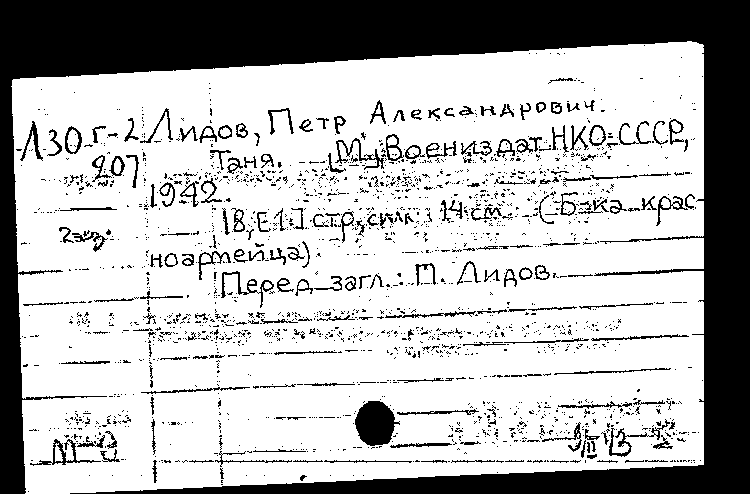 Л30г-2 Лидов, Петр Александрович.
207 Таня. [М.] Воениздат НКО СССР,
1942.
2экз. 18, [1] стр., илл. 14 см. (Б-ка крас-
ноармейца).
Перед загл.: П. Лидов.